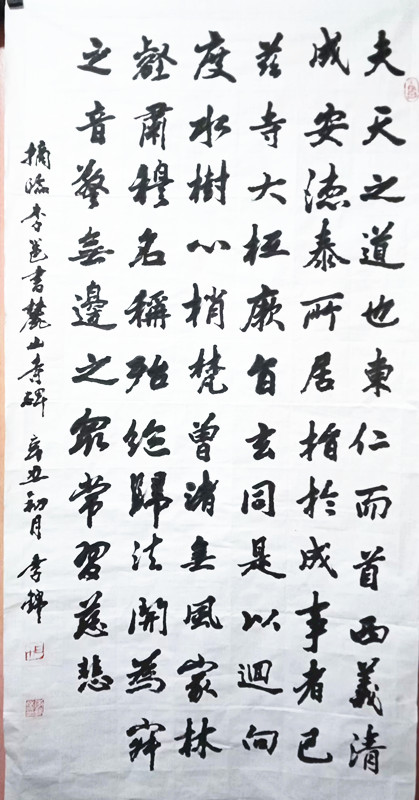 夫天之道也東仁而首西義清
成安德泰所居指於成事者已
茲寺大抵厥旨玄同是以迴向
度水樹心梢梵曾渚無風家林
壑肅穆名稱殆絕歸法開為寐
之音驚無邊之眾常習慈悲
摘臨李邕書麓山寺碑 辛丑初月 李錦